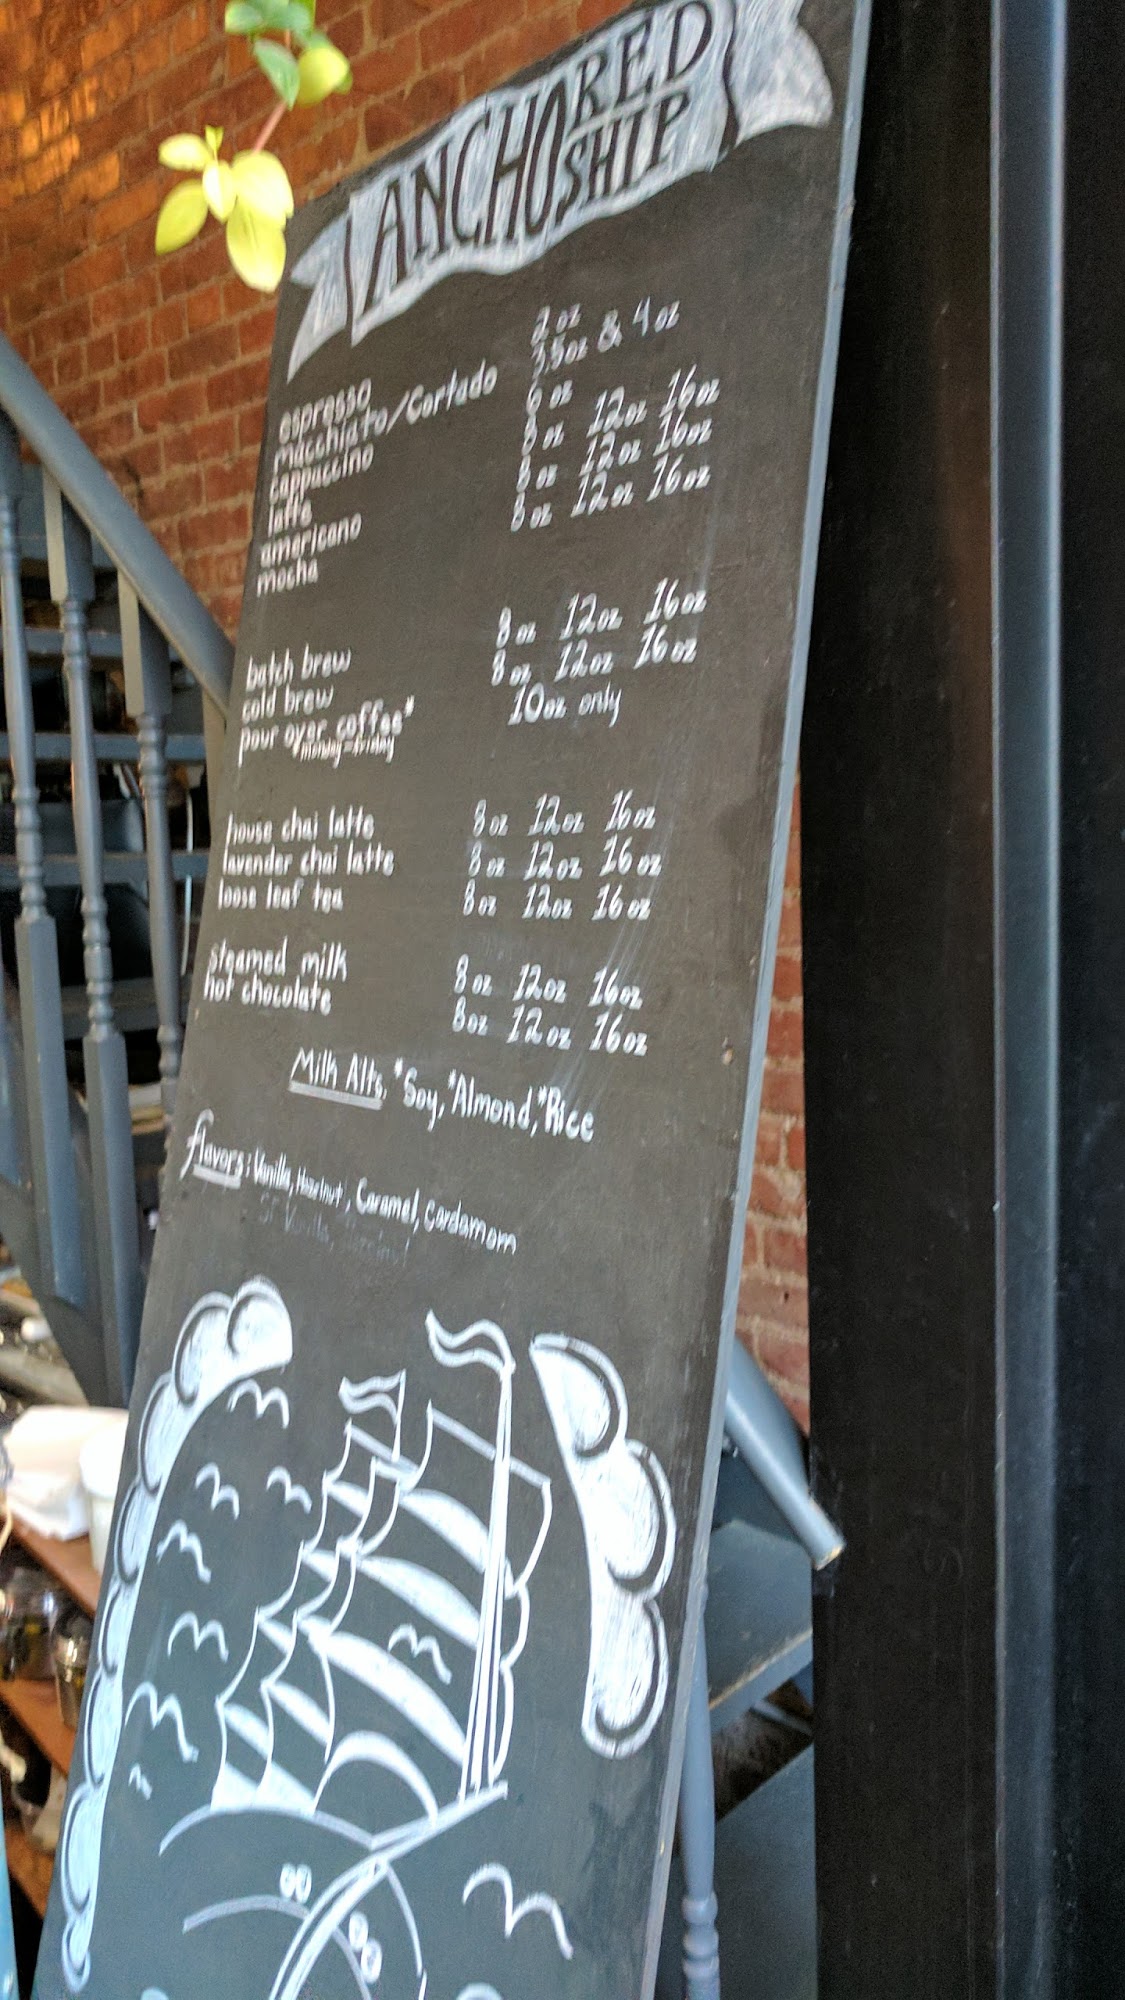 ANCHORED
SHIP
espresso 2 oz
macchiato/Cortado 3.5oz & 4 oz
cappuccino 6 oz
latte 8 oz 12oz 16oz
americano 8 oz 12oz 16oz
mocha 8 oz 12oz 16oz
batch brew 8 oz 12oz 16oz
cold brew 8 oz 12oz 16oz
pour over coffee* 10oz only
monday-friday
house chai latte 8 oz 12oz 16oz
lavender chai latte 8 oz 12oz 16oz
loose leaf tea 8 oz 12oz 16oz
steamed milk 8 oz 12oz 16oz
hot chocolate 8oz 12oz 16oz
Milk Alts. *Soy, *Almond, *Rice
flavors: Vanilla, Hazelnut, Caramel, Cardamom
SF Vanilla,